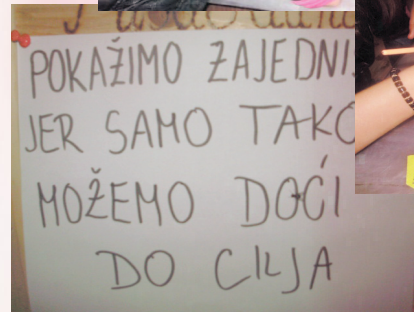 POKAŽIMO
JER SAMO TAKO
MOŽEMO DOĆI
DO CILJA